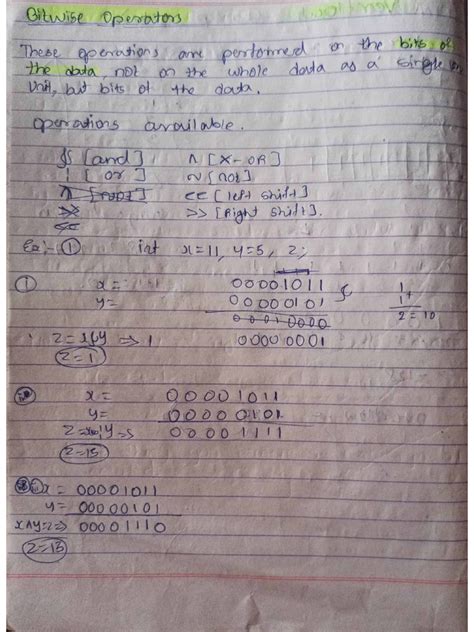 Bitwise Operators
These operations are performed on the bits of
the data, not on the whole data as a single
unit, but bits of the data.
operations available.
& [and] ^ [X-OR]
| [or] ~ [not]
<< [left shift]
>> [Right shift].
>>
<<
Ex:- ① int x=11, y=5, z;
① x= 00001011 &
y= 00000101
00010000
z=x&y => 1 00000001
z=1
1
1+
2=10
x= 00001011
y= 00000101
z=x|y => 00001111
z=15
x= 00001011
y= 00000101
x^y=z=> 00001110
z=13